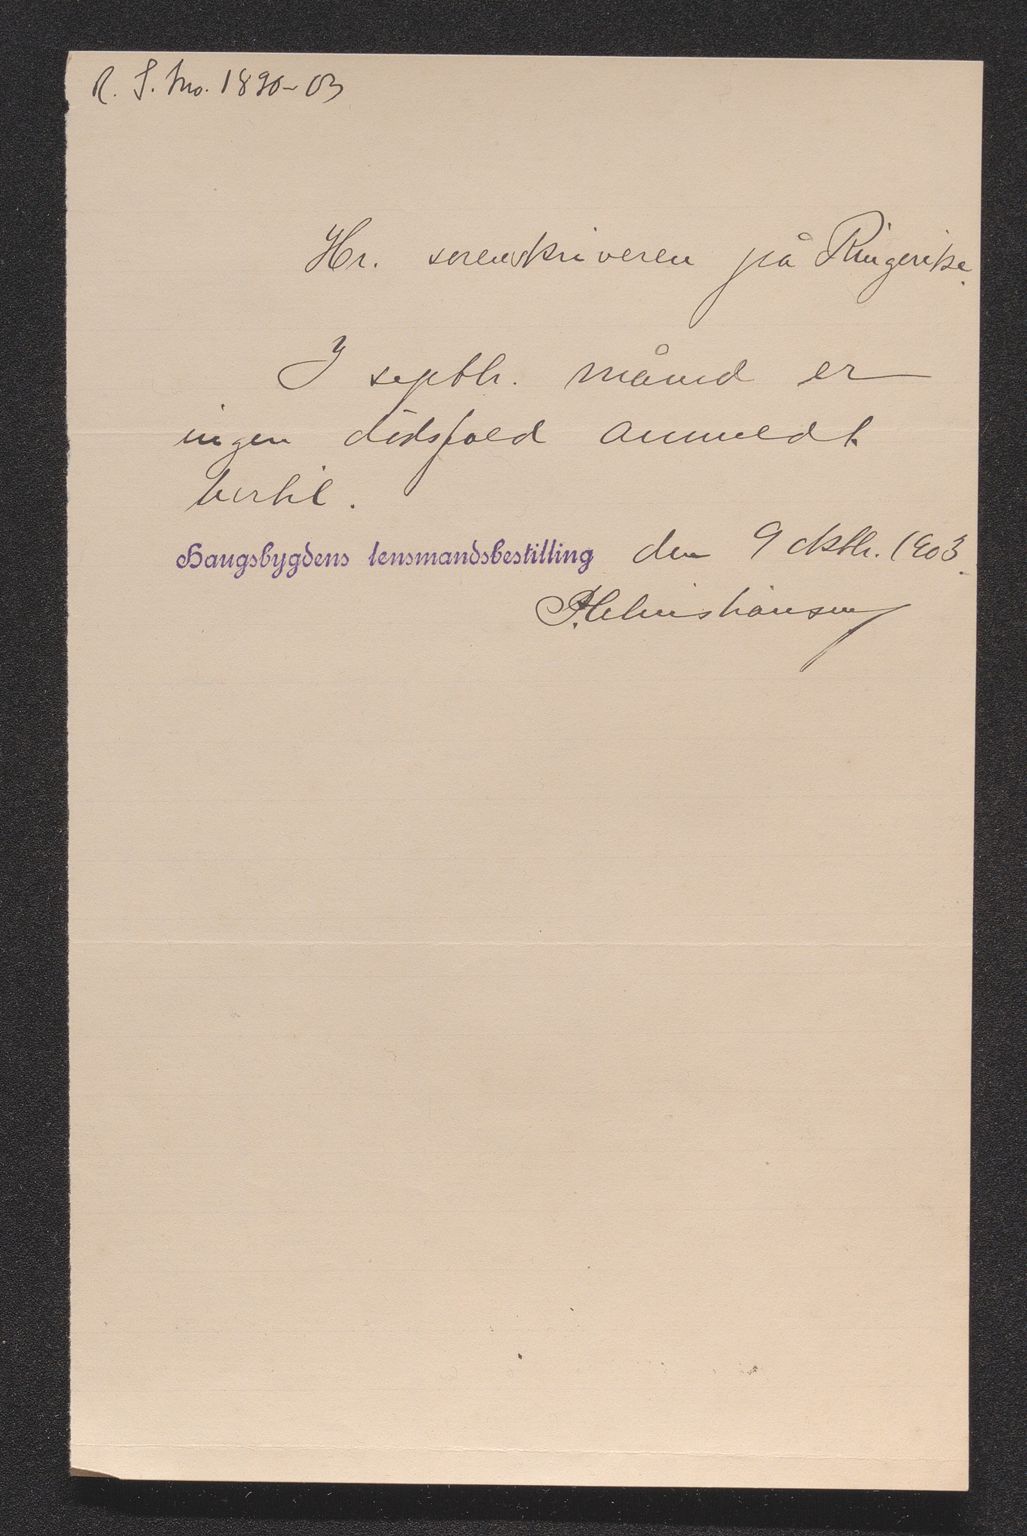 R. S. No. 1890-03
Hr. sorenskriveren på Ringerike.
I septbr. måned er
ingen dödsfald anmeldt
hertil.
Haugsbygdens lensmandsbestilling den 9 oktbr. 1903.